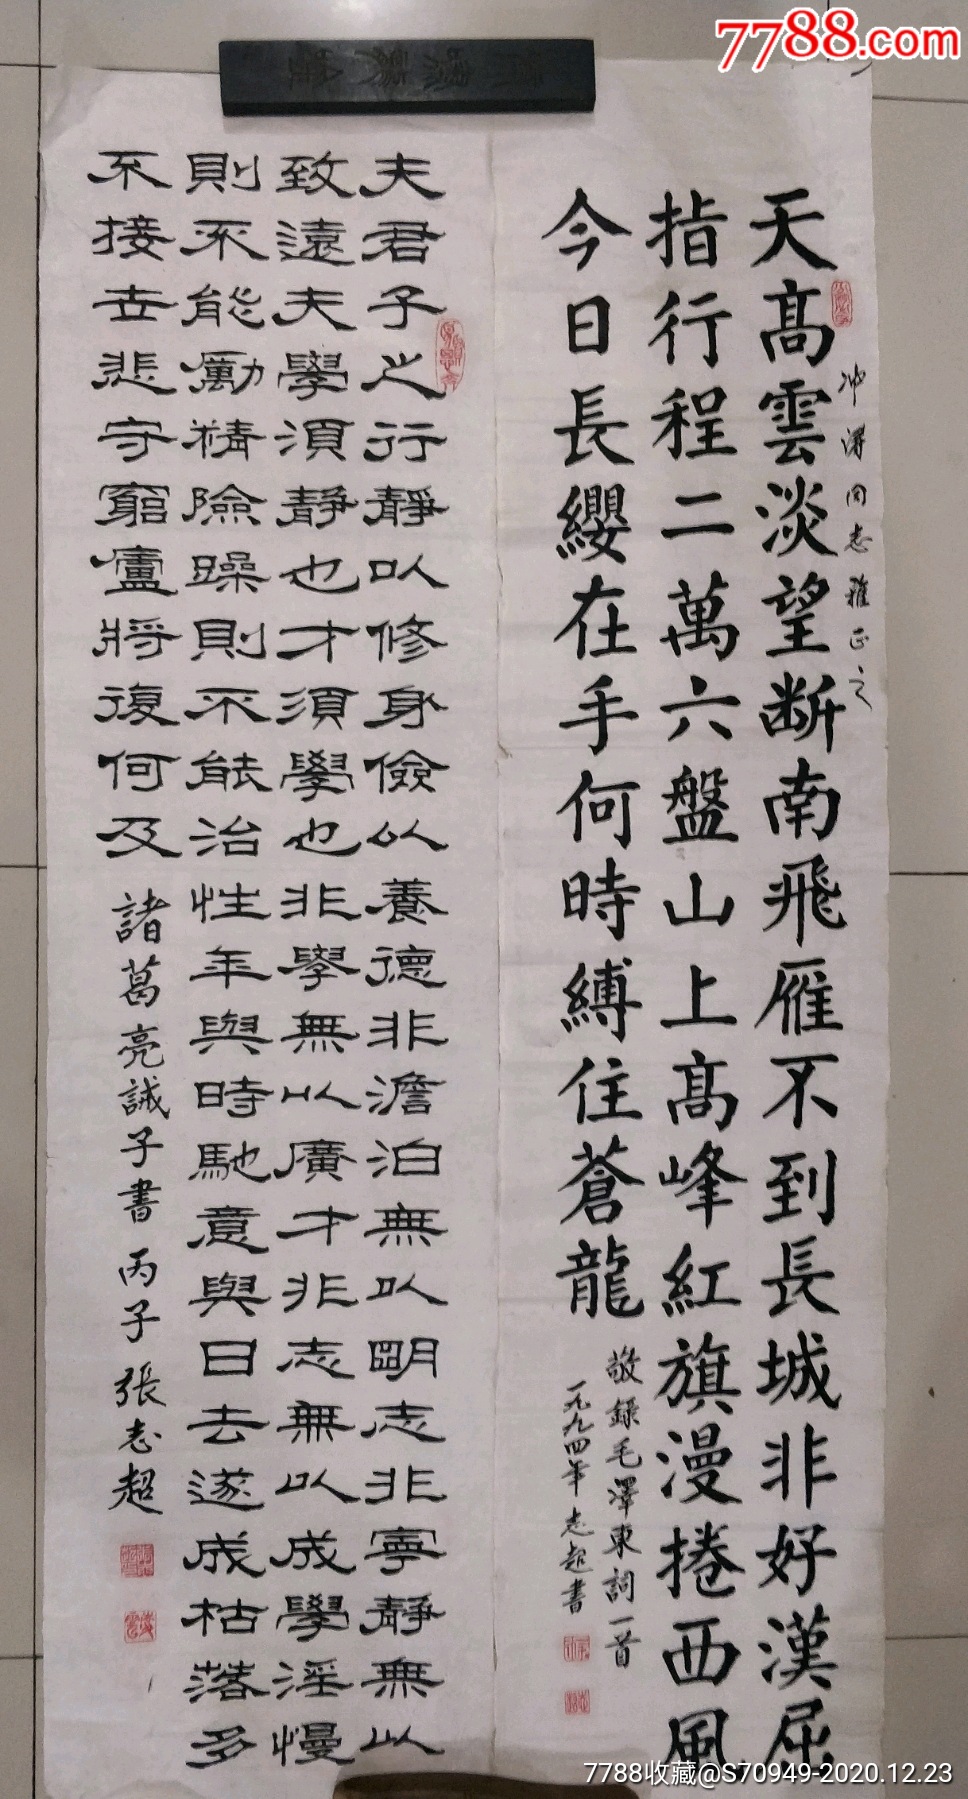 7788.com
天高雲淡望断南飛雁不到長城非好漢屈
指行程二萬六盤山上高峰紅旗漫捲西風
今日長纓在手何時縛住蒼龍
同志雅正之
敬錄毛澤東詞一首
一九九四年志超書
夫君子之行靜以修身儉以養德非澹泊無以明志非寧靜無以
致遠夫學須靜也才須學也非學無以廣才非志無以成學淫慢
則不能勵精險躁則不能治性年與時馳意與日去遂成枯落多
不接世悲守窮廬將復何及
諸葛亮誡子書丙子張志超
7788收藏@S70949-2020.12.23